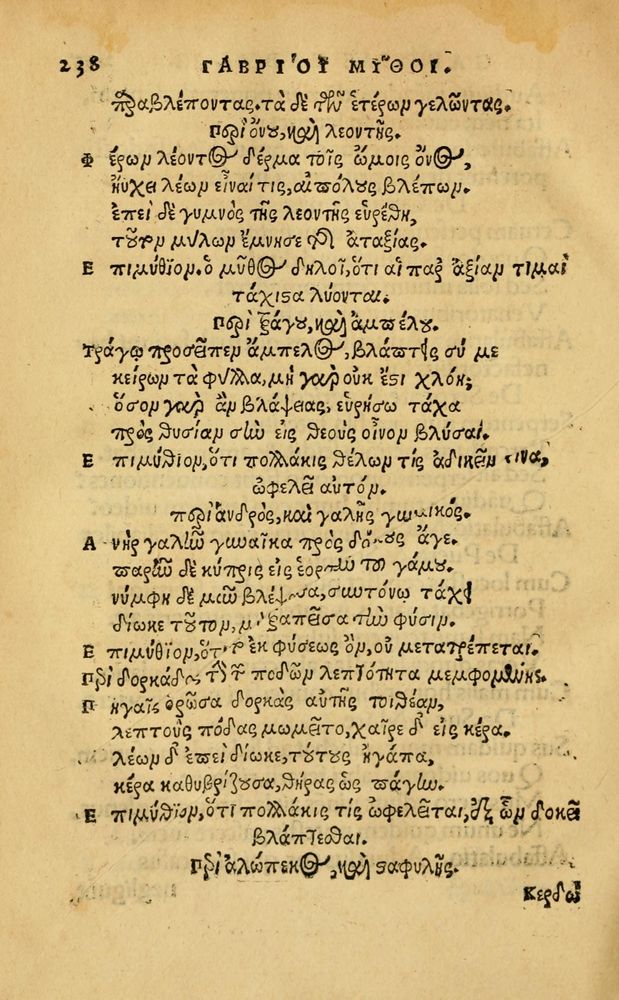 238 ΓΑΒΡΙΟΥ ΜΥΘΟΙ.
παραβλέποντας. τὰ δὲ τῶν ἑτέρων γελῶντας.
Περὶ ὄνου, καὶ λεοντῆς.
Φέρων λέοντος δέρμα τοῖς ὤμοις ὄνος,
ηὔχει λέων εἶναί τις, αἰπόλους βλέπων.
ἐπεὶ δὲ γυμνὸς τῆς λεοντῆς εὑρέθη,
τοῦτον μύλων ἔμνησε τῆς ἀταξίας.
Ἐπιμύθιον. ὁ μῦθος δηλοῖ, ὅτι αἱ παρ' ἀξίαν τιμαὶ
τάχιστα λύονται.
Περὶ τράγου, καὶ ἀμπέλου.
Τράγῳ προσεῖπεν ἄμπελος, βλάπτεις σύ με
κείρων τὰ φύλλα, μὴ γὰρ οὐκ ἔστι χλόη;
ὅσον γὰρ ἂν βλάψειας, εὑρήσω τάχα
πρὸς θυσίαν σὴν εἰς θεοὺς οἶνον βλύσαι.
Ἐπιμύθιον, ὅτι πολλάκις θέλων τὶς ἀδικεῖν τινα,
ὠφελεῖ αὐτόν.
περὶ ἀνδρὸς, καὶ γαλῆς γυναικός.
Ἀνὴρ γαλῆν γυναῖκα πρὸς δόμους ἄγε.
παρῆν δὲ κύπρις εἰς ἑορτὴν τοῦ γάμου.
νύμφη δὲ μῦν βλέψασα, συντόνῳ τάχει
δίωκε τοῦτον, μὴ τραπεῖσα τὴν φύσιν.
Ἐπιμύθιον, ὅτι τὸ ἐκ φύσεως ὂν, οὐ μετατρέπεται.
Περὶ δορκάδος τὴν τῶν ποδῶν λεπτότητα μεμφομένης.
Πηγαῖς ὁρῶσα δορκὰς αὑτῆς τὴν θέαν,
λεπτοὺς πόδας μωμεῖτο, χαῖρε δ' εἰς κέρα.
λέων δ' ἐπεὶ δίωκε, τούτους ἠγάπα,
κέρα καθυβρίζουσα, θήρας ὡς πάγην.
Ἐπιμύθιον, ὅτι πολλάκις τὶς ὠφελεῖται, ἐξ ὧν δοκεῖ
βλάπτεσθαι.
Περὶ ἀλώπεκος, καὶ σταφυλῆς.
Κερδὼ